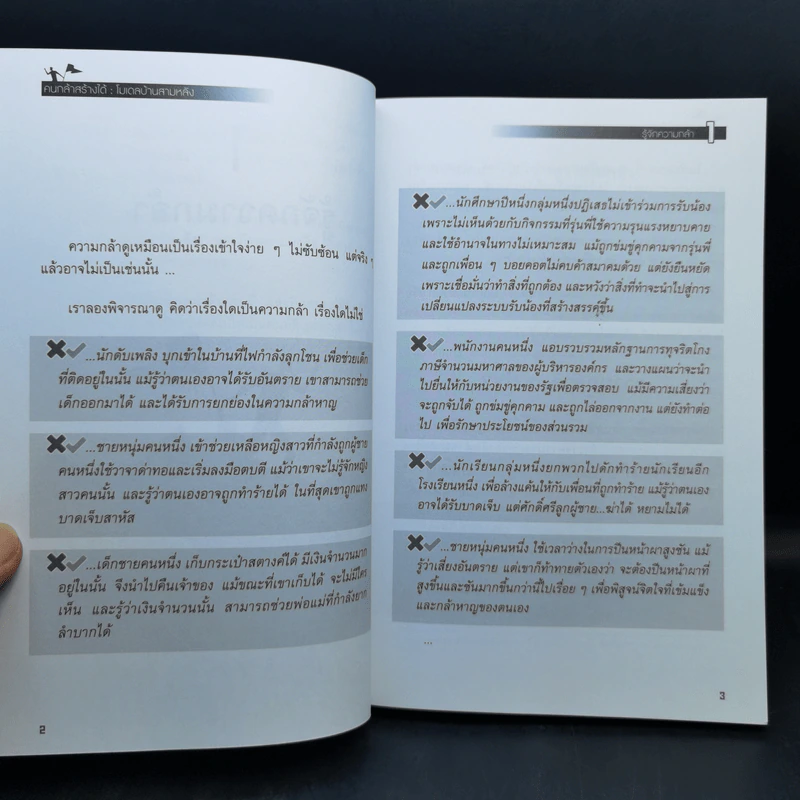 คนกล้าสร้างได้ : โมเดลบ้านสามหลัง
ความกล้าดูเหมือนเป็นเรื่องเข้าใจง่าย ๆ ไม่ซับซ้อน แต่จริง ๆ
แล้วอาจไม่เป็นเช่นนั้น ...
เราลองพิจารณาดู คิดว่าเรื่องใดเป็นความกล้า เรื่องใดไม่ใช่
...นักดับเพลิง บุกเข้าในบ้านที่ไฟกำลังลุกโชน เพื่อช่วยเด็ก
ที่ติดอยู่ในนั้น แม้รู้ว่าตนเองอาจได้รับอันตราย เขาสามารถช่วย
เด็กออกมาได้ และได้รับการยกย่องในความกล้าหาญ
...ชายหนุ่มคนหนึ่ง เข้าช่วยเหลือหญิงสาวที่กำลังถูกผู้ชาย
คนหนึ่งใช้วาจาด่าทอและเริ่มลงมือตบตี แม้ว่าเขาจะไม่รู้จักหญิง
สาวคนนั้น และรู้ว่าตนเองอาจถูกทำร้ายได้ ในที่สุดเขาถูกแทง
บาดเจ็บสาหัส
...เด็กชายคนหนึ่ง เก็บกระเป๋าสตางค์ได้ มีเงินจำนวนมาก
อยู่ในนั้น จึงนำไปคืนเจ้าของ แม้ขณะที่เขาเก็บได้ จะไม่มีใคร
เห็น และรู้ว่าเงินจำนวนนั้น สามารถช่วยพ่อแม่ที่กำลังยาก
ลำบากได้
2
รู้จักความกล้า 1
...นักศึกษาปีหนึ่งกลุ่มหนึ่งปฏิเสธไม่เข้าร่วมการรับน้อง
เพราะไม่เห็นด้วยกับกิจกรรมที่รุ่นพี่ใช้ความรุนแรงหยาบคาย
และใช้อำนาจในทางไม่เหมาะสม แม้ถูกข่มขู่คุกคามจากรุ่นพี่
และถูกเพื่อน ๆ บอยคอตไม่คบค้าสมาคมด้วย แต่ยังยืนหยัด
เพราะเชื่อมั่นว่าทำสิ่งที่ถูกต้อง และหวังว่าสิ่งที่ทำจะนำไปสู่การ
เปลี่ยนแปลงระบบรับน้องที่สร้างสรรค์ขึ้น
...พนักงานคนหนึ่ง แอบรวบรวมหลักฐานการทุจริตโกง
ภาษีจำนวนมหาศาลของผู้บริหารองค์กร และวางแผนว่าจะนำ
ไปยื่นให้กับหน่วยงานของรัฐเพื่อตรวจสอบ แม้มีความเสี่ยงว่า
จะถูกจับได้ ถูกข่มขู่คุกคาม และถูกไล่ออกจากงาน แต่ยังทำต่อ
ไป เพื่อรักษาประโยชน์ของส่วนรวม
...นักเรียนกลุ่มหนึ่งยกพวกไปดักทำร้ายนักเรียนอีก
โรงเรียนหนึ่ง เพื่อล้างแค้นให้กับเพื่อนที่ถูกทำร้าย แม้รู้ว่าตนเอง
อาจได้รับบาดเจ็บ แต่ศักดิ์ศรีลูกผู้ชาย...ฆ่าได้ หยามไม่ได้
...ชายหนุ่มคนหนึ่ง ใช้เวลาว่างในการปีนหน้าผาสูงชัน แม้
รู้ว่าเสี่ยงอันตราย แต่เขาก็ท้าทายตัวเองว่า จะต้องปีนหน้าผาที่
สูงขึ้นและชันมากขึ้นกว่านี้ไปเรื่อย ๆ เพื่อพิสูจน์จิตใจที่เข้มแข็ง
และกล้าหาญของตนเอง
...
3